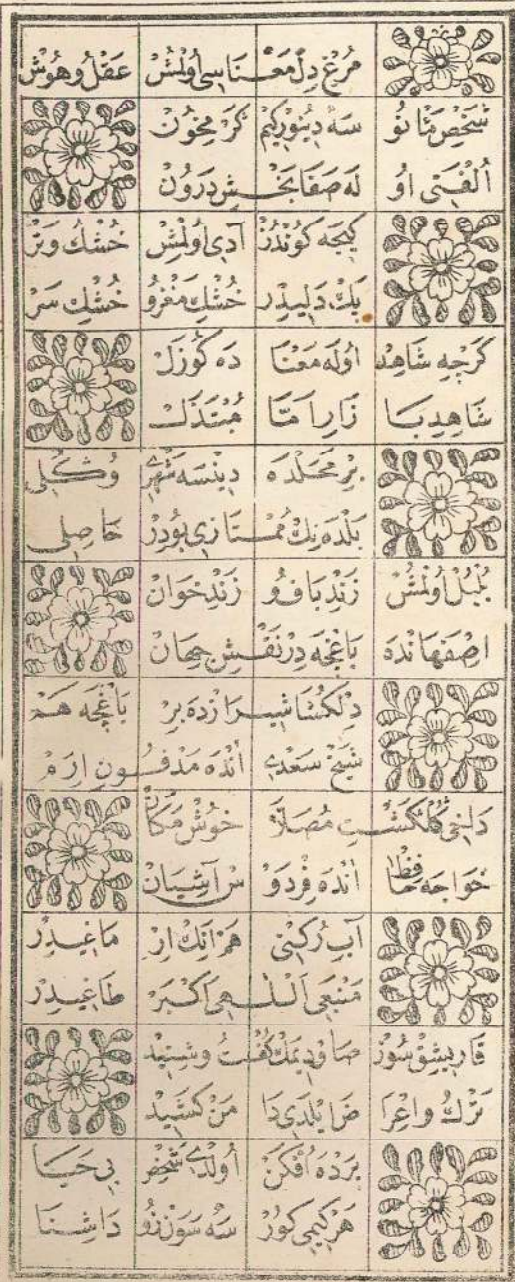 مُرْغِ دِلْ مَعْنَاسِی اُولْمِشْ عَقْلُ وهُوشْ
شَخْصِ مَانُو سَه دِینُورکِیمْ کَرْمِخُونْ
اُلْفَتِی اُو لَه صَفَابَخْشِ دَرُونْ
کِیجَه کُونْدُزْ آدِی اُولْمِشْ خُشْكُ وتَرْ
پَكْ دَلِیدِرْ خُشْكِ مَغْزُو خُشْكِ سَرْ
کَرْچِه شَاهِدْ اُولَه مَعْنَا دَه کُوزَلْ
شَاهِدِ بَا زَارِ اَمَّا مُبْتَذَلْ
بِرْ مَحَلْدَه دِینْسَه شَهْرِی وُ کُلِی
بَلْدَه نِكْ مُمْتَازِی بُودِرْ حَاصِلِی
بُلْبُلْ اُولْمِشْ زَنْدِبَافُ و زَنْدِخَوانْ
اِصْفَهَانْدَه بَاغْچَه دِرْ نَقْشِ جِهَانْ
دِلْکُشَا شِیرَازْدَه بِرْ بَاغْچَه هَمْ
شَیْخْ سَعْدِی اَنْدَه مَدْفُونِ اِرَمْ
دَاخِی کُلْکَشْتِ مُصَلَّا خُوشْ مَکَانْ
خَوَاجَه حَافِظْ اَنْدَه فِرْدَوْسْ آشِیَانْ
آبِ رُکْنِی هَمْ اَنِكْ اِرْمَاغِیدِرْ
مَنْبَعِی اَللّٰهِ اَکْبَرْ طَاغِیدِرْ
قَارِیشِقْ سُوزْ صَاوْدِیمَكْ کُفْتُ وشِنِیدْ
تَرْكُ واِعْرَا ضَ ایْلَدِی دَامَنْ کَشِیدْ
پَرْدَه اُفْکَنْ اُولْدِی شَخْصِ بِی حَیَا
هَرْ کِیمِی کُورْ سَه سَوَنْ رُو دَاشِنَا